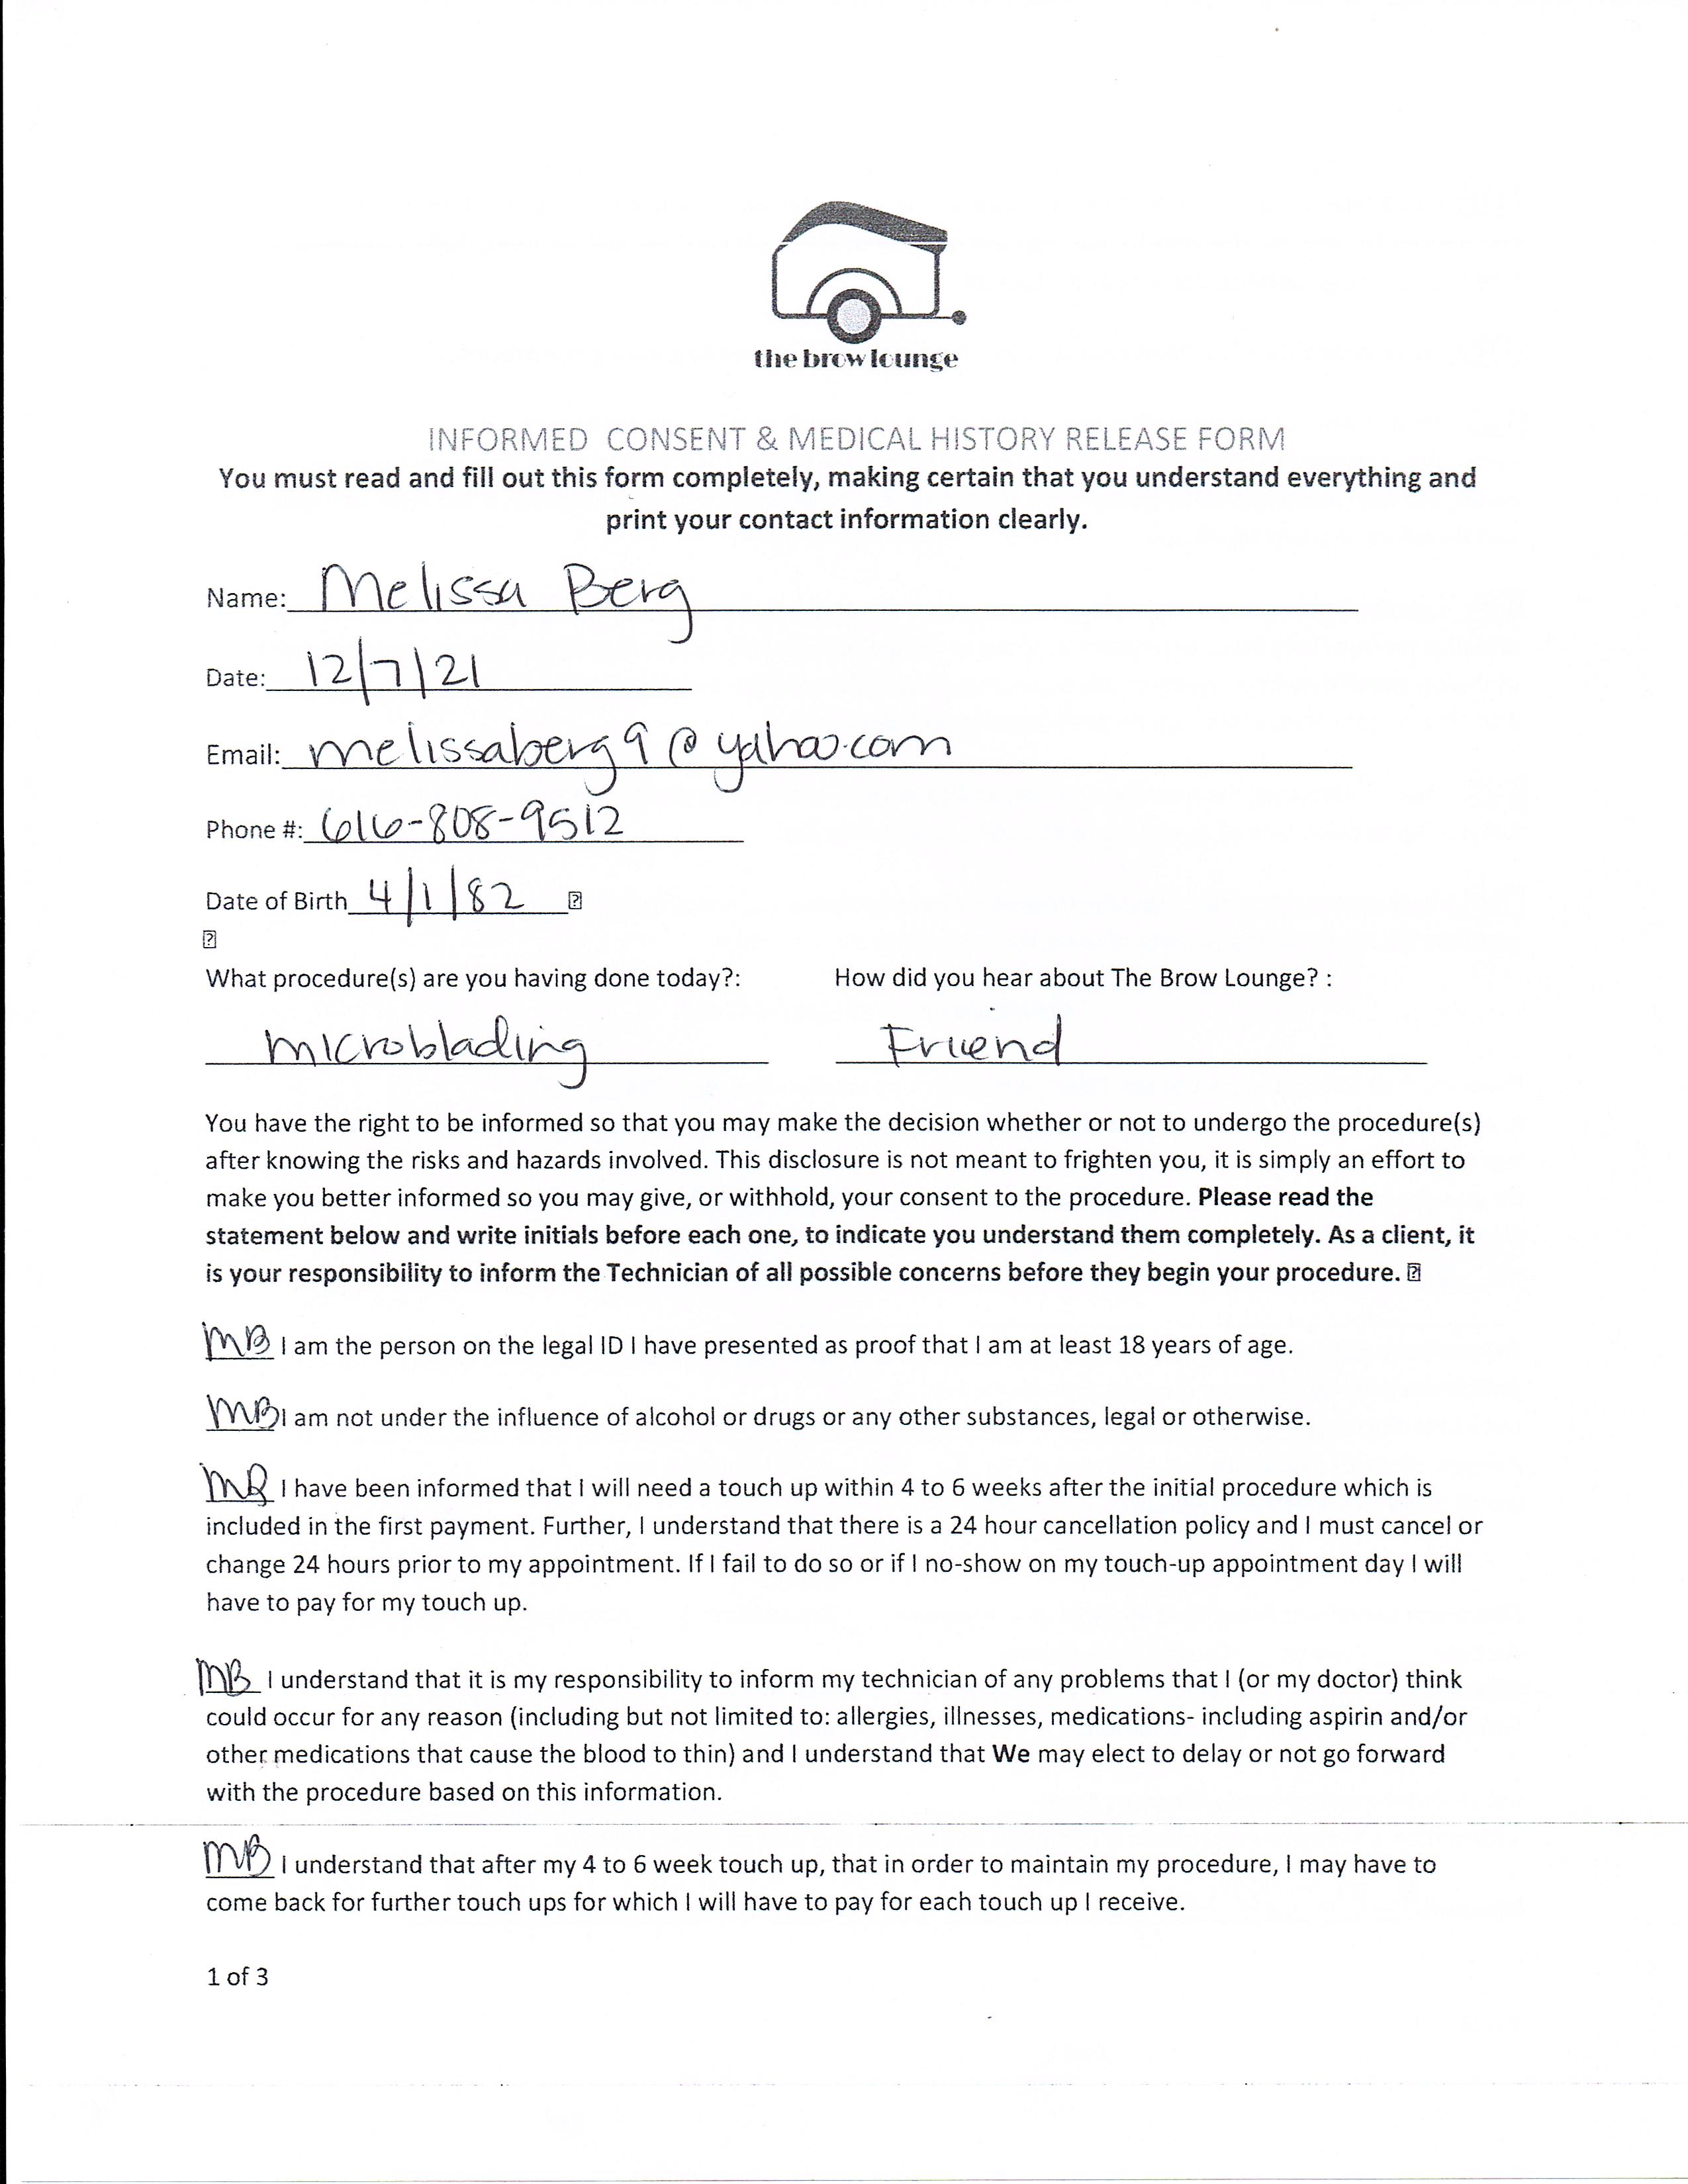 the brow lounge
INFORMED CONSENT & MEDICAL HISTORY RELEASE FORM
You must read and fill out this form completely, making certain that you understand everything and
print your contact information clearly.
Name: Melissa Berg
Date: 12/7/21
Email: melissaberg9@yahoo.com
Phone #: 616-808-9512
Date of Birth 4/1/82
What procedure(s) are you having done today?: How did you hear about The Brow Lounge? :
microblading Friend
You have the right to be informed so that you may make the decision whether or not to undergo the procedure(s)
after knowing the risks and hazards involved. This disclosure is not meant to frighten you, it is simply an effort to
make you better informed so you may give, or withhold, your consent to the procedure. Please read the
statement below and write initials before each one, to indicate you understand them completely. As a client, it
is your responsibility to inform the Technician of all possible concerns before they begin your procedure.
MB I am the person on the legal ID I have presented as proof that I am at least 18 years of age.
MB I am not under the influence of alcohol or drugs or any other substances, legal or otherwise.
MB I have been informed that I will need a touch up within 4 to 6 weeks after the initial procedure which is
included in the first payment. Further, I understand that there is a 24 hour cancellation policy and I must cancel or
change 24 hours prior to my appointment. If I fail to do so or if I no-show on my touch-up appointment day I will
have to pay for my touch up.
MB I understand that it is my responsibility to inform my technician of any problems that I (or my doctor) think
could occur for any reason (including but not limited to: allergies, illnesses, medications- including aspirin and/or
other medications that cause the blood to thin) and I understand that We may elect to delay or not go forward
with the procedure based on this information.
MB I understand that after my 4 to 6 week touch up, that in order to maintain my procedure, I may have to
come back for further touch ups for which I will have to pay for each touch up I receive.
1 of 3